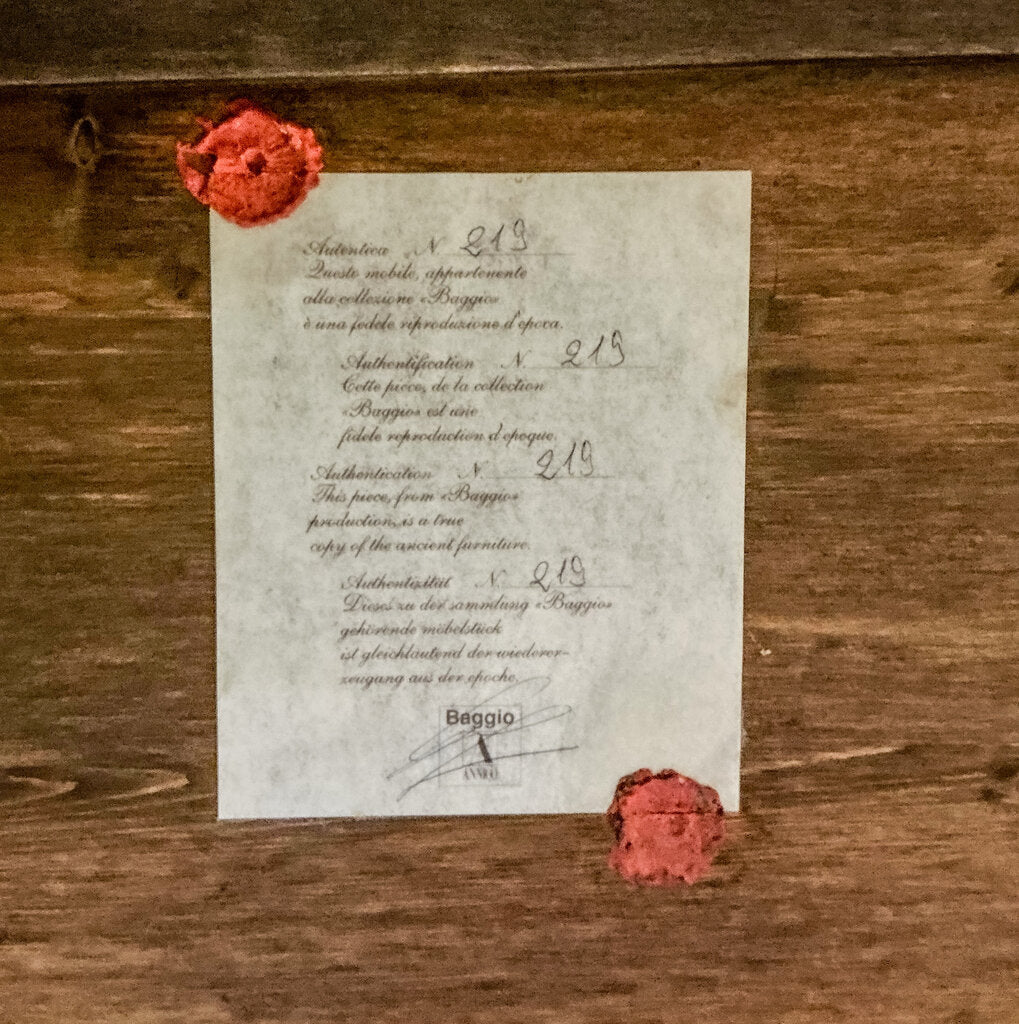 Autentica N. 219
Questo mobile, appartenente
alla collezione «Baggio»
è una fedele riproduzione d'epoca.
Authentification N. 219
Cette pièce, de la collection
«Baggio» est une
fidele reproduction d'epoque.
Authentication N. 219
This piece, from «Baggio»
production, is a true
copy of the ancient furniture.
Authentizität N. 219
Dieses zu der sammlung «Baggio»
gehörende möbelstück
ist gleichlautend der wiederer-
zeugang aus der epoche.
Baggio